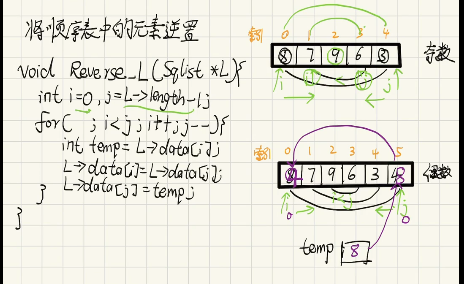 将顺序表中的元素逆置
void Reverse_L(Sqlist *L){
int i=0,j=L->length-1;
for( ; i<j; i++,j--){
int temp= L->data[i];
L->data[i]=L->data[j];
L->data[j]=temp;
}
}
索引 0 1 2 3 4
8 7 9 6 3 奇数
i j
索引 0 1 2 3 4 5
7 9 6 3 偶数
i j
temp 8